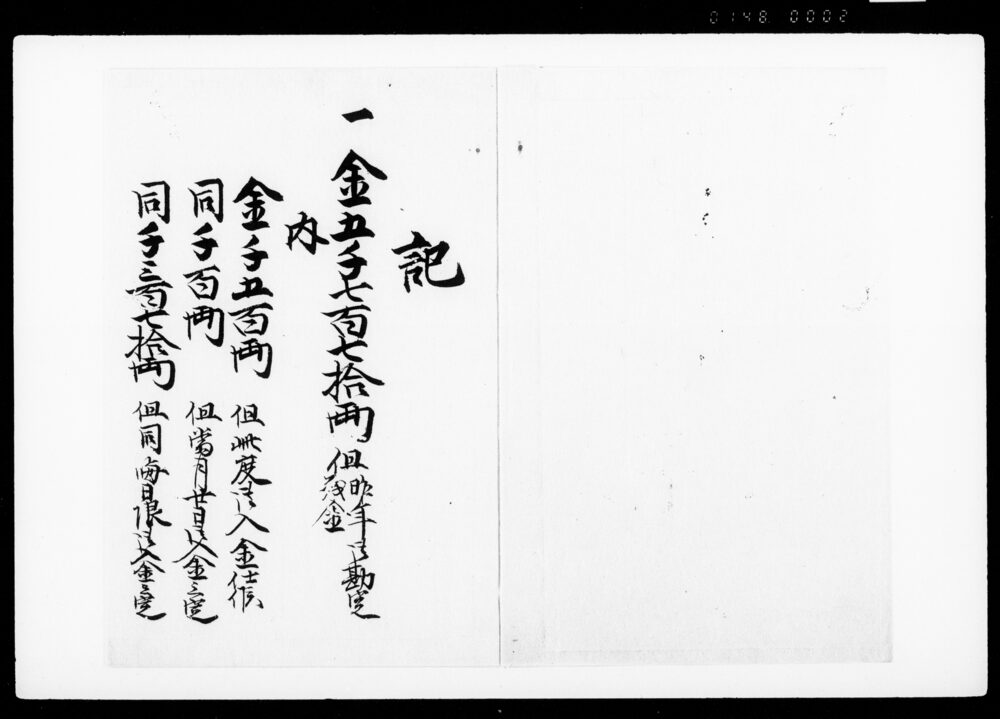 0148 0002
記
一 金五千七百七拾両 但昨年御勘定
残金
内
金千五百両 但此度御入金仕候
同千百両 但當月廿日御入金之定
同千三百七拾両 但同晦日限御入金之定